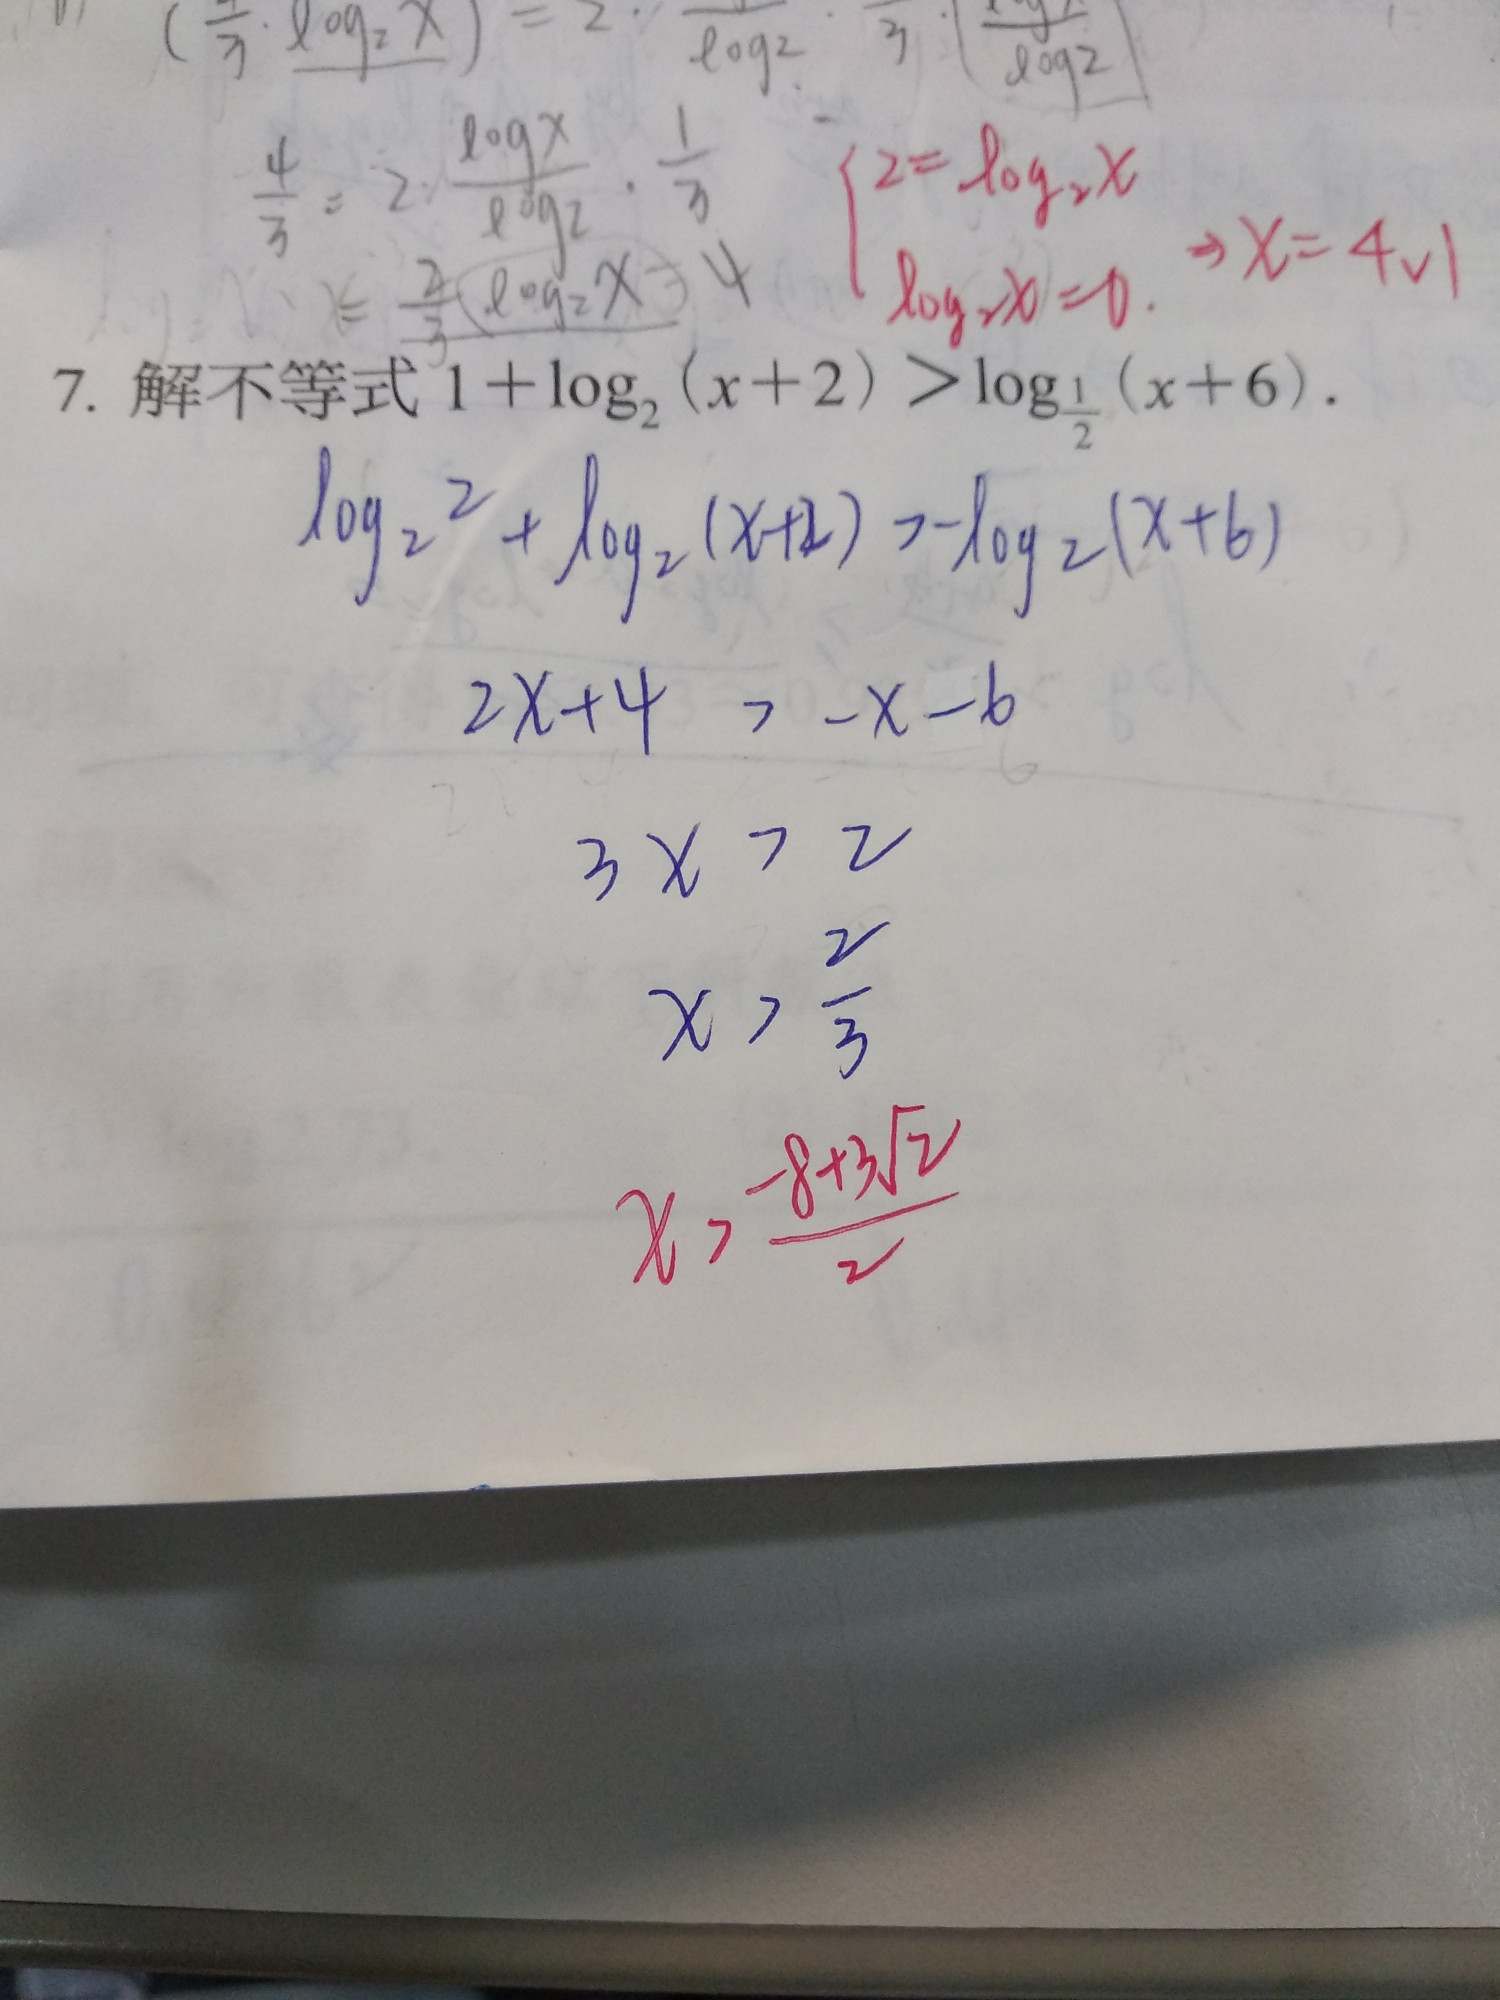 (1/3 · log₂x) = 2 · /log2 · /3 · (logx/log2)
4/3 = 2 · logx/log2 · 1/3
{2 = log₂x
x = 2/3 (log₂x = 4
log₂x = 0. ⇒ x = 4 ∨ 1
7. 解不等式 1+log₂(x+2)>log_{1/2}(x+6).
log₂2 + log₂(x+2) > -log₂(x+6)
2x+4 > -x-6
3x > 2
x > 2/3
x > (-8+3√2)/2